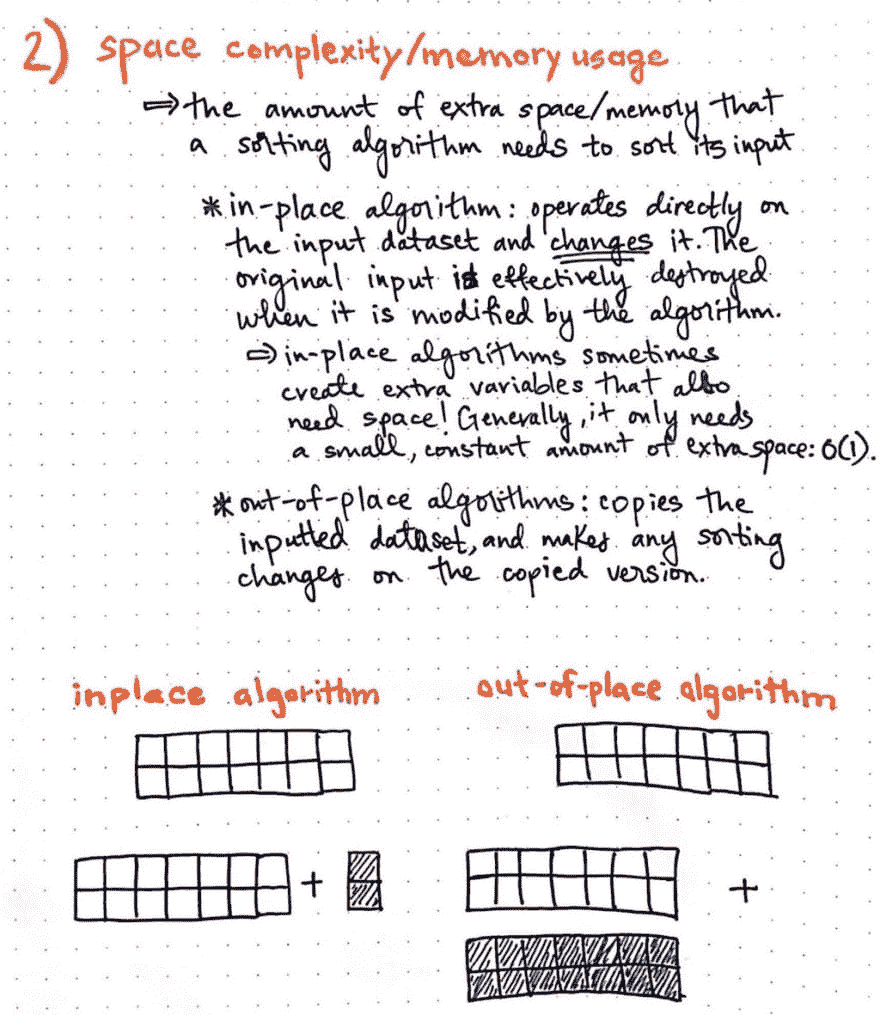 2) space complexity/memory usage
⇒ the amount of extra space/memory that
a sorting algorithm needs to sort its input
* in-place algorithm: operates directly on
the input dataset and changes it. The
original input is effectively destroyed
when it is modified by the algorithm.
⇒ in-place algorithms sometimes
create extra variables that also
need space! Generally, it only needs
a small, constant amount of extra space: O(1).
* out-of-place algorithms: copies the
inputted dataset, and makes any sorting
changes on the copied version.
inplace algorithm
out-of-place algorithm
+
+